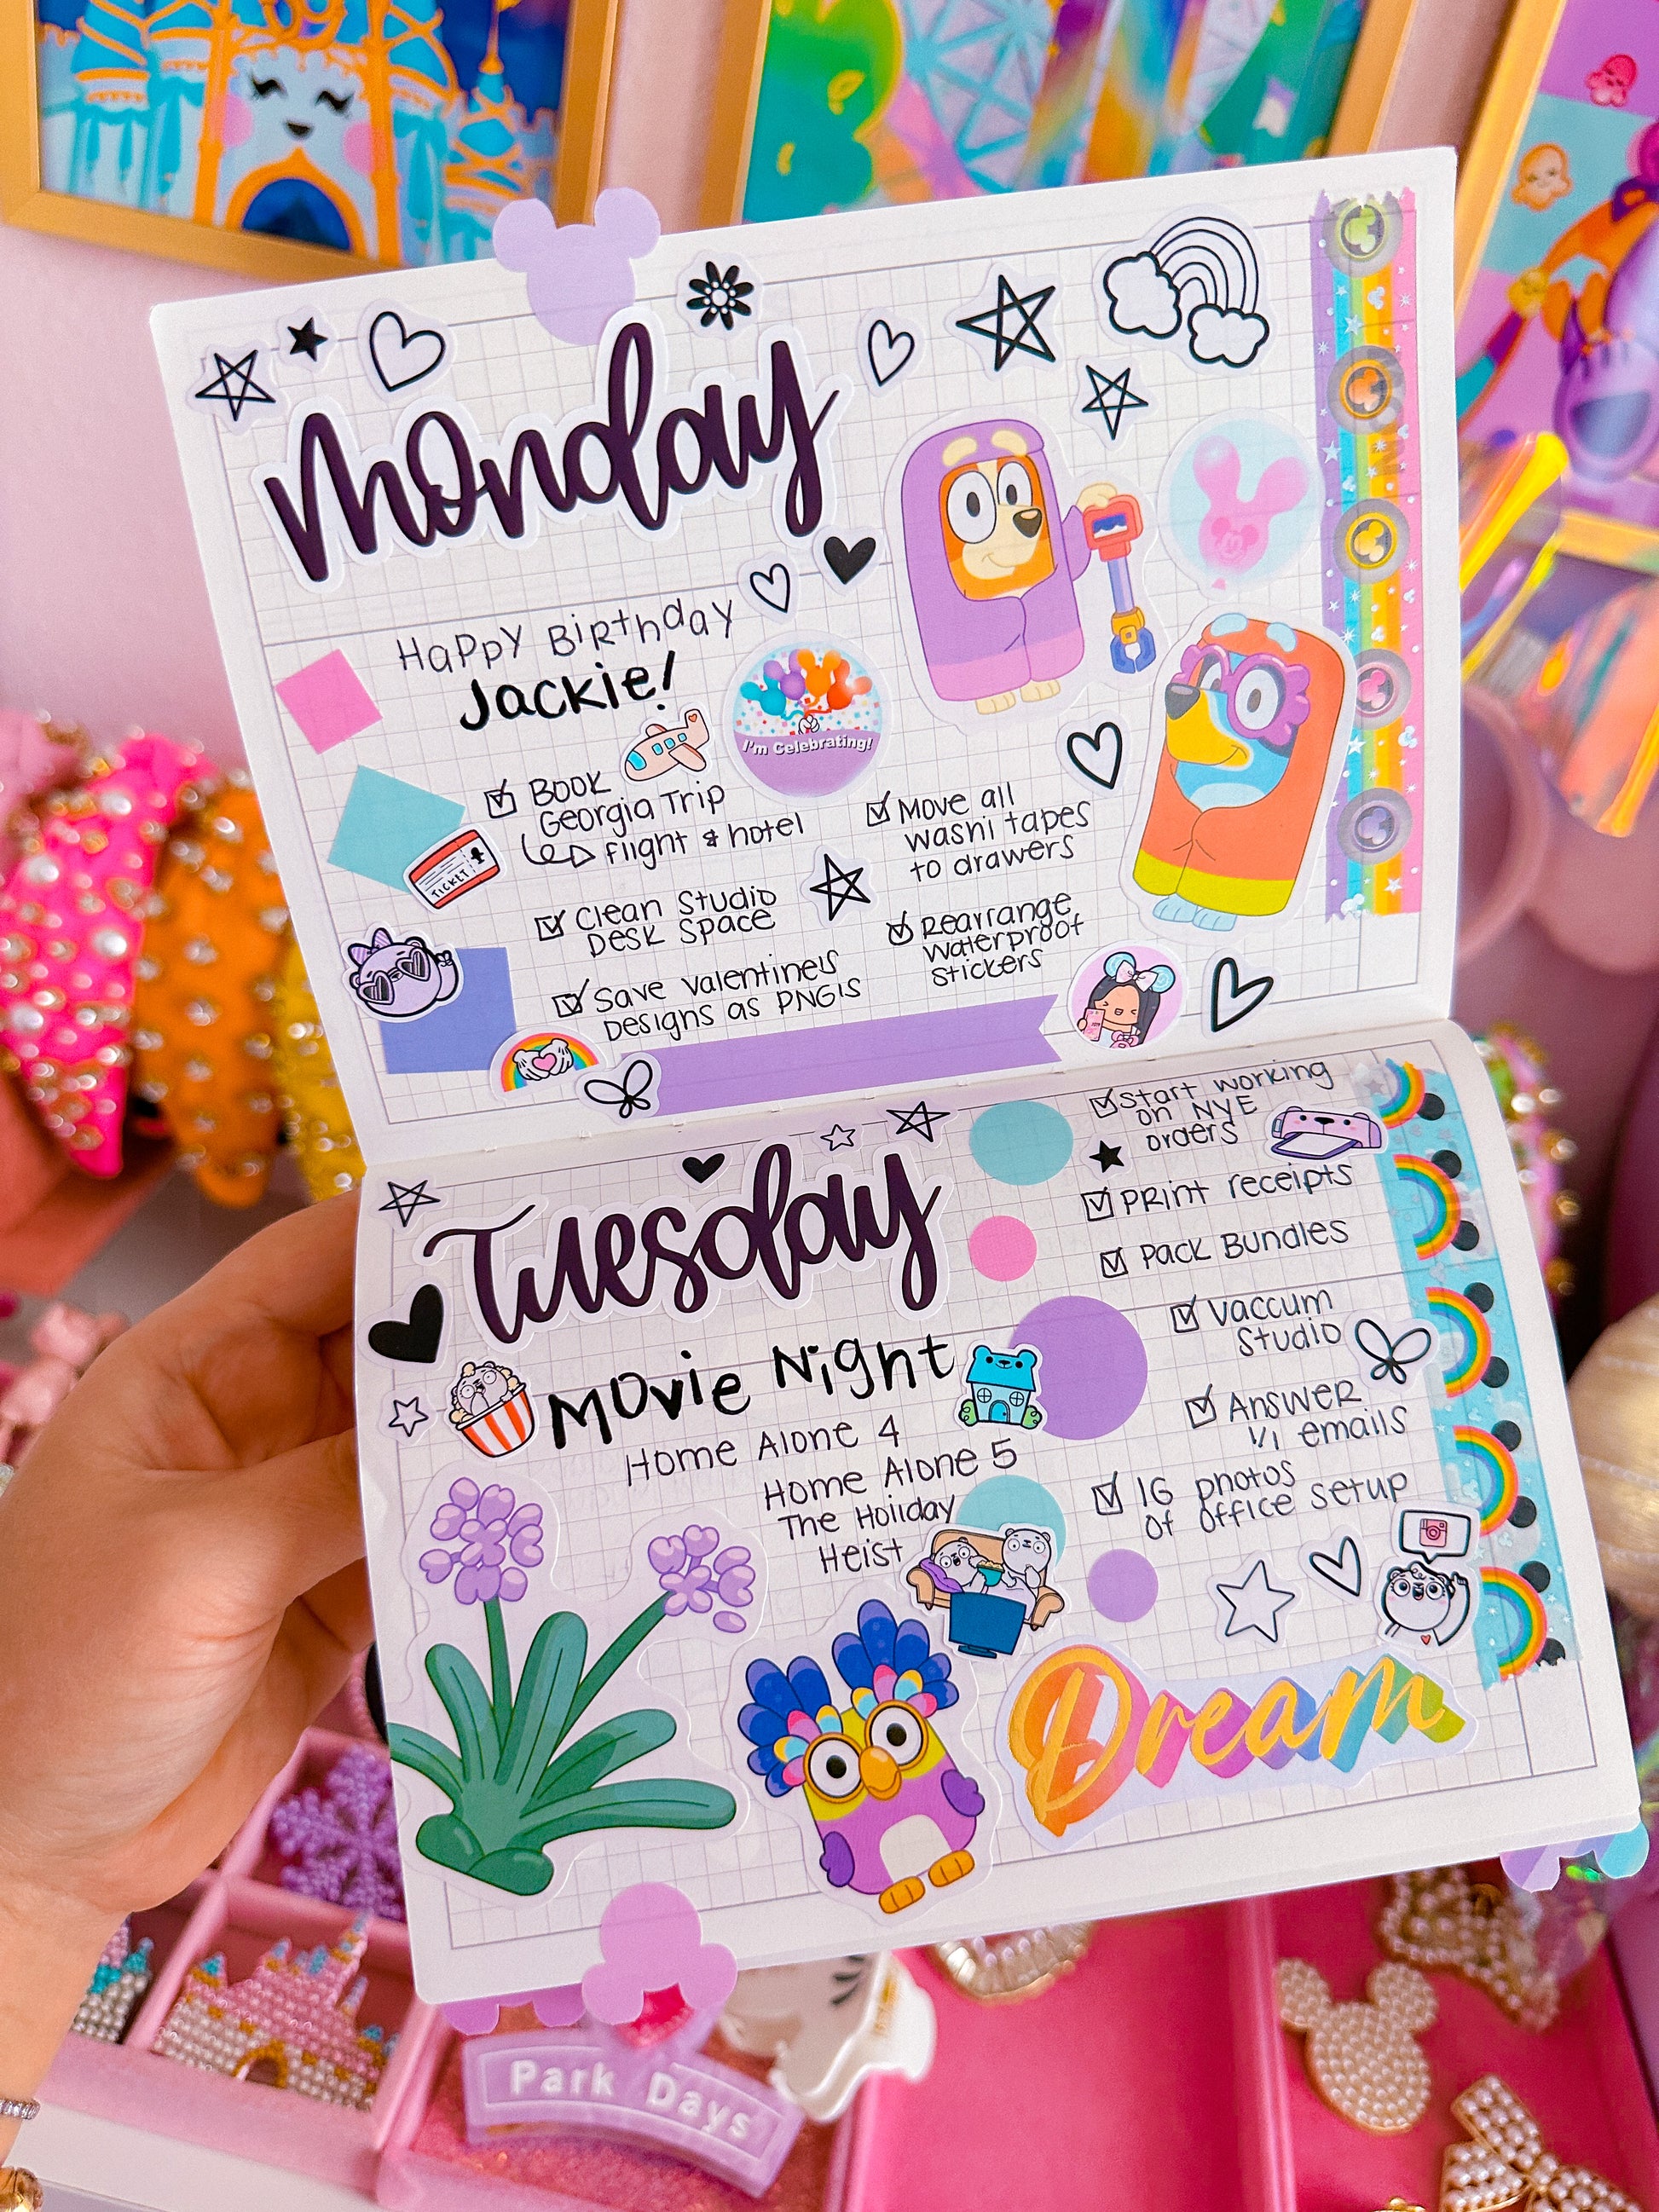 Monday
Happy Birthday
Jackie!
I'm Celebrating!
Book
Georgia Trip
flight & hotel
TICKET
Clean Studio
Desk Space
Save Valentine's
Designs as PNG's
Move all
washi tapes
to drawers
Rearrange
waterproof
stickers
Tuesday
Movie Night
Home Alone 4
Home Alone 5
The Holiday
Heist
Start working
on NYE
orders
Print receipts
Pack Bundles
Vaccum
Studio
Answer
1/1 emails
IG photos
of office setup
Dream
Park Days